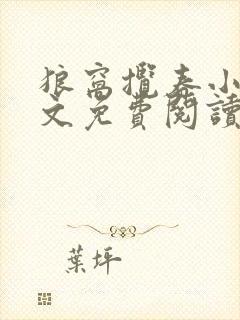 狼窩攬春小
文免費閱讀
葉坪